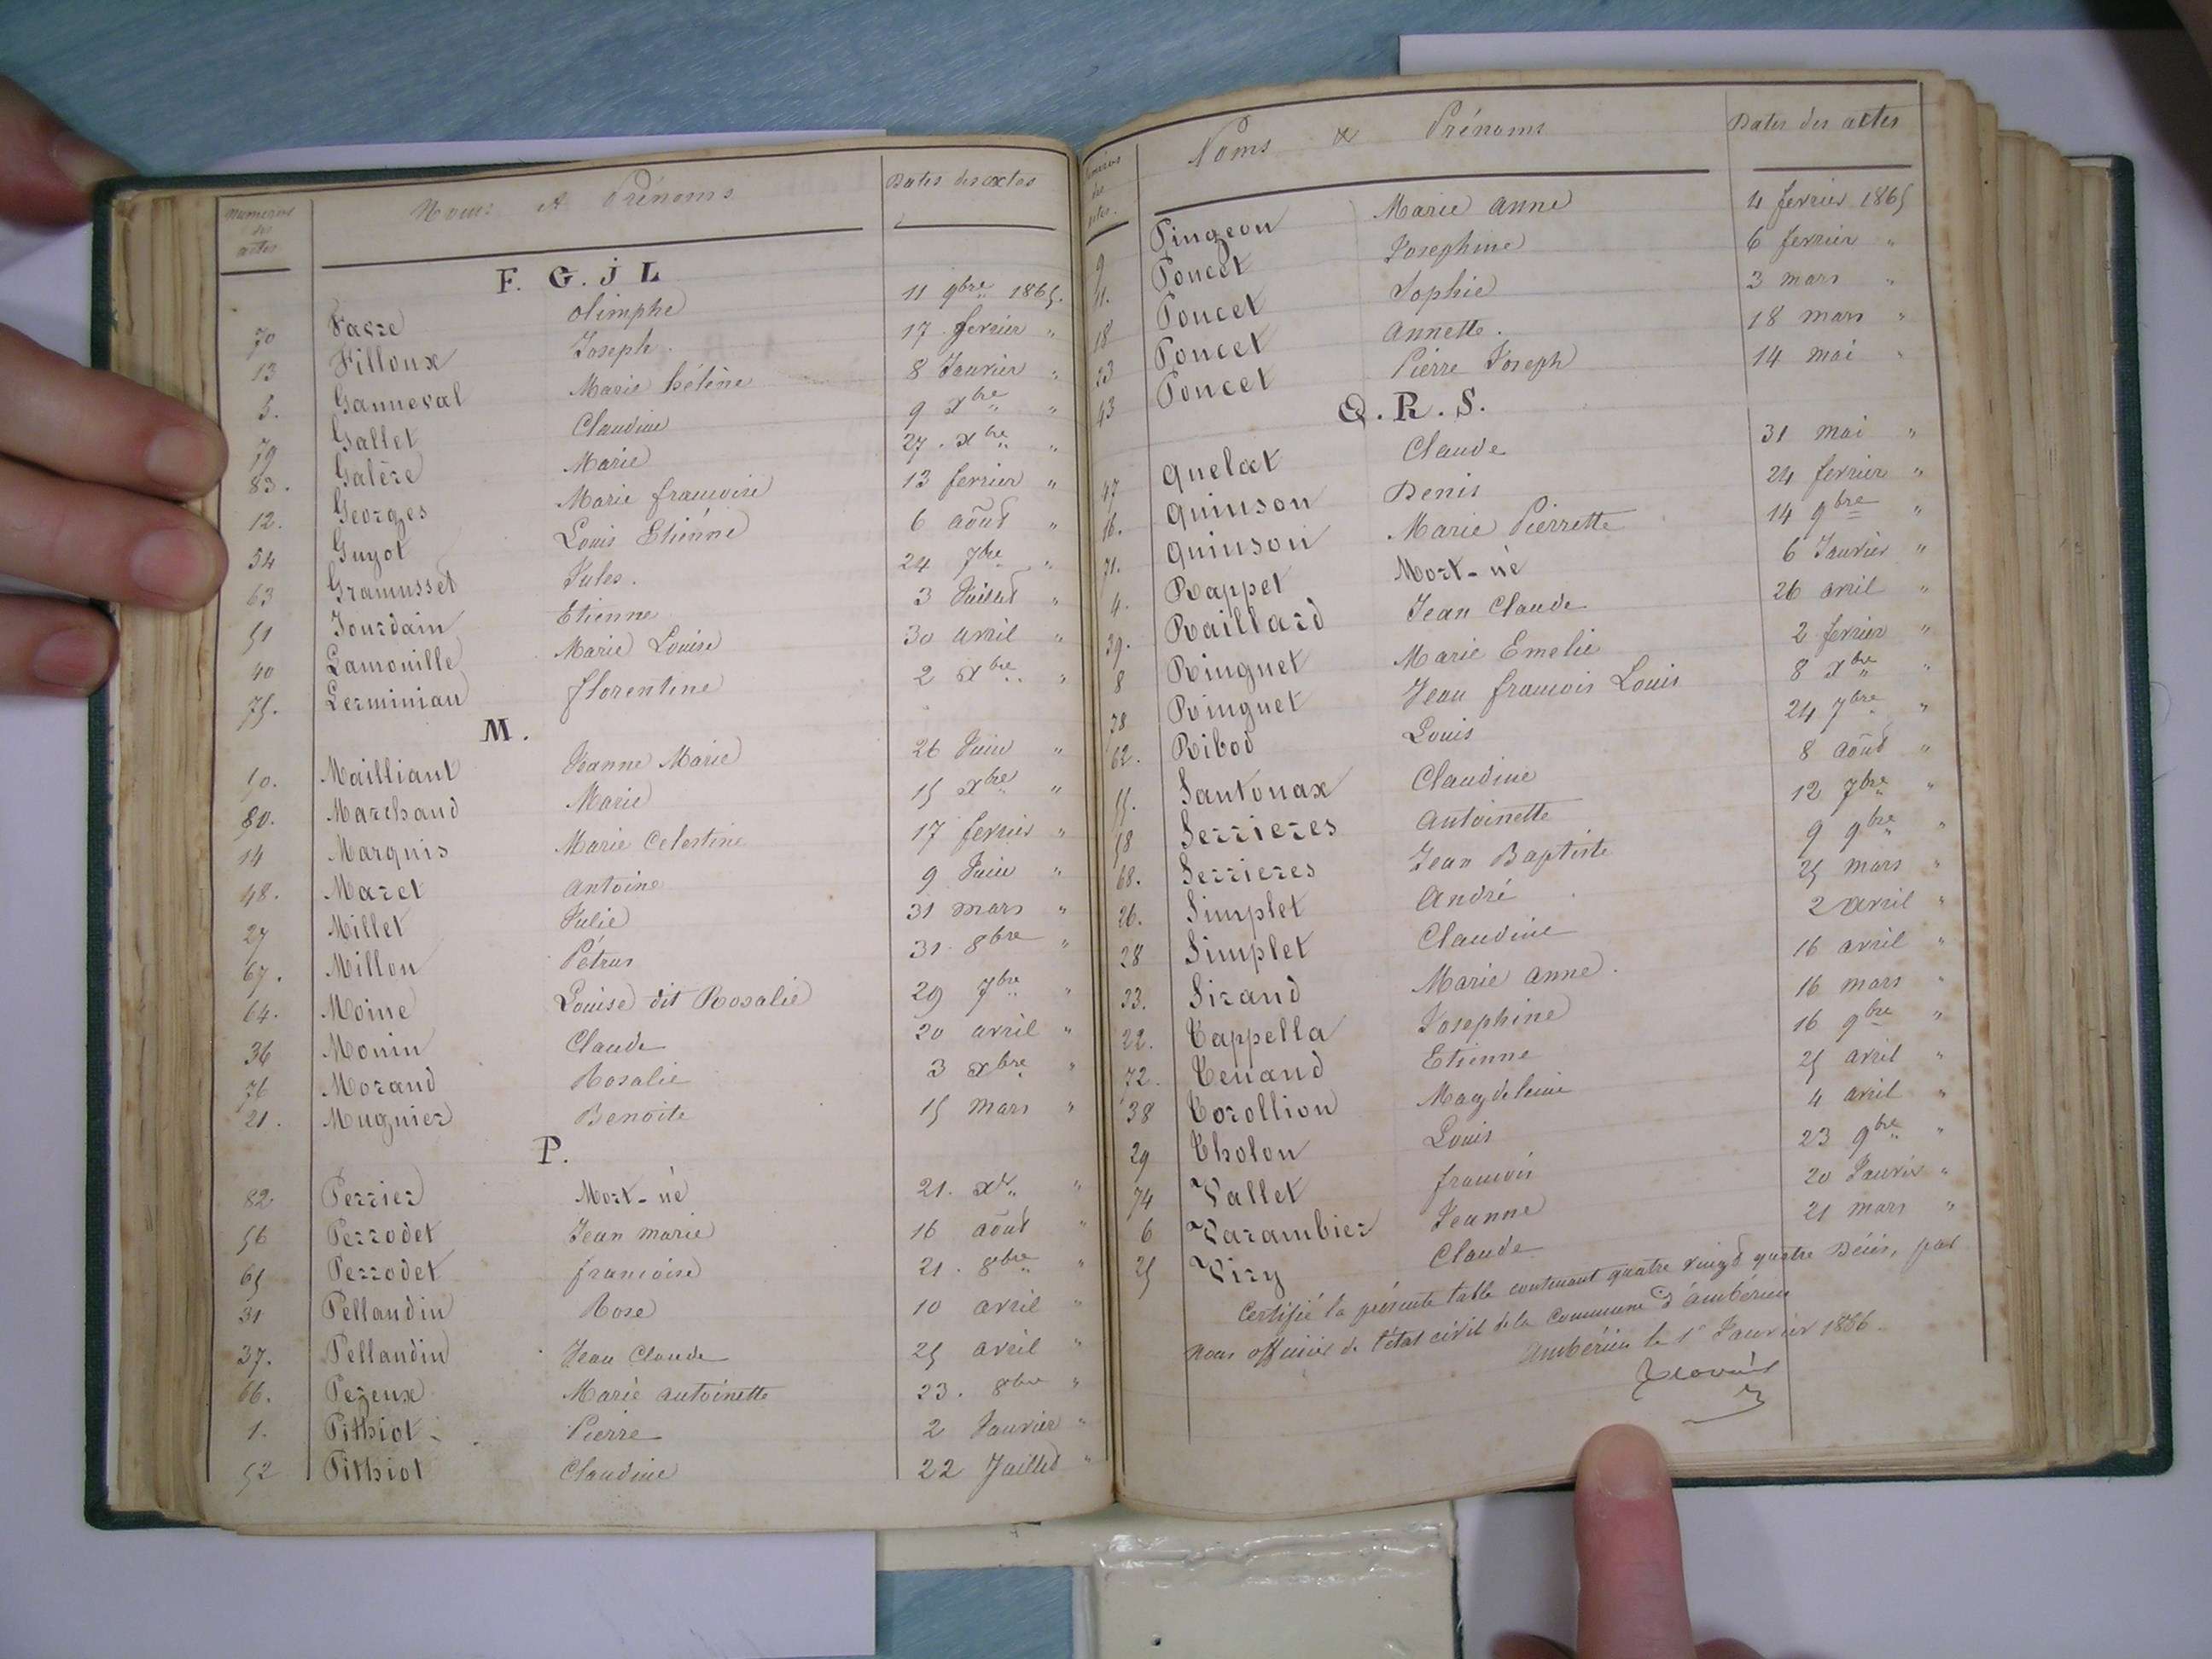 Numéros des actes Noms et Prénoms Dates des actes
F. G. J L
70 Favre olimphe 11 9bre 1865.
13 Filloux Joseph. 17 fevrier "
5. Ganneval Marie hélène 8 Janvier "
79 Gallet Claudine 9 xbre "
83. Galère Marie 27. xbre "
12. Georges Marie francoise 13 fevrier "
54 Guyot Louis Etienne 6 août "
63 Gramusset Jules. 24 7bre "
51 Jourdain Etienne 3 Juillet "
40 Lamouille Marie Louise 30 avril "
75. Lerminiau florentine 2 xbre "
M.
50. Mailliant Jeanne Marie 26 Juin "
80. Marchand Marie 15 xbre "
14 Marquis Marie Celestine 17 fevrier "
48. Maret antoine 9 Juin "
27 Millet Julie 31 mars "
67. Millon Pétrus 31 8bre "
64. Moine Louise dit Rosalie 29 7bre "
36 Monin Claude 20 avril "
76 Morand Rosalie 3 xbre "
21. Mugnier Benoite 15 mars "
P.
82. Perrier Mort-né 21. xbre "
56 Perrodet Jean marie 16 août "
65 Perrodet francoise 21. 8bre "
31 Pellaudin Rose 10 avril "
37. Pellaudin Jean Claude 25 avril "
66. Pezeux Marie antoinette 23. 8bre "
1. Pithiot Pierre 2 Janvier "
52 Pithiot Claudine 22 Juillet "
Numéros des actes. Noms & Prénoms Dates des actes
9 Pingeon Marie anne 4 fevrier 1865
11. Poncet Josephine 6 fevrier "
18 Poncet Sophie 3 mars "
23 Poncet annette. 18 mars "
43 Poncet Pierre Joseph 14 mai "
Q. R. S.
47 Quelat Claude 31 mai "
16. Quinson Denis 24 fevrier "
71. Quinson Marie Pierrette 14 9bre "
4. Rappet Mort-né 6 Janvier "
39. Raillard Jean Claude 26 avril "
8 Ringuet Marie Emelie 2 fevrier "
78 Ringuet Jean francois Louis 8 xbre "
62. Ribod Louis 24 7bre "
55. Santonax Claudine 8 août "
58 Serrieres antoinette 12 7bre "
68. Serrieres Jean Baptiste 9 9bre "
26. Simplet André 25 mars "
28 Simplet Claudine 2 avril "
33. Sirand Marie anne. 16 avril "
22. Tappella Josephine 16 mars "
72. Tenand Etienne 16 9bre "
38 Torollion Magdeleine 25 avril "
29 Tholon Louis 4 avril "
74 Vallet francois 23 9bre "
6 Varambier Jeanne 20 Janvier "
25 Viry Claude 21 mars "
Certifié la présente table contenant quatre vingt quatre Décès, par
nous officier de l'état civil de la commune d'ambérieu
ambérieu le 1er Janvier 1866.